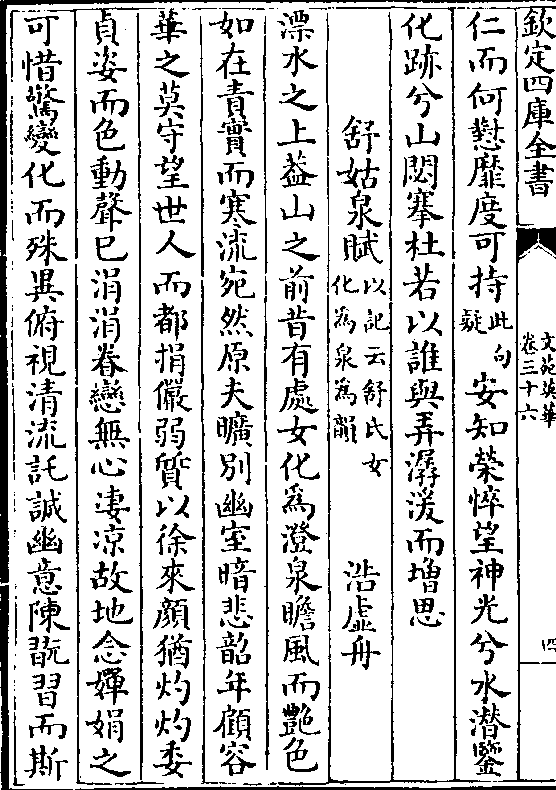 欽定四庫全書
文苑英華
卷三十六
四
仁而何懟靡度可持此句疑安知榮悴望神光兮水潛鑒
化跡兮山閟搴杜若以誰與弄潺湲而增思
舒姑泉賦以記云舒氏女化為泉為韻 浩虚舟
漂水之上葢山之前昔有處女化為澄泉瞻風而艷色
如在責實而寒流宛然原夫曠別幽室暗悲韶年顧容
華之莫守望世人而都捐儼弱質以徐來顔猶灼灼委
貞姿而色動聲已涓涓眷戀無心凄凉故地念嬋娟之
可惜驚變化而殊異俯視清流託誠幽意陳翫習而斯